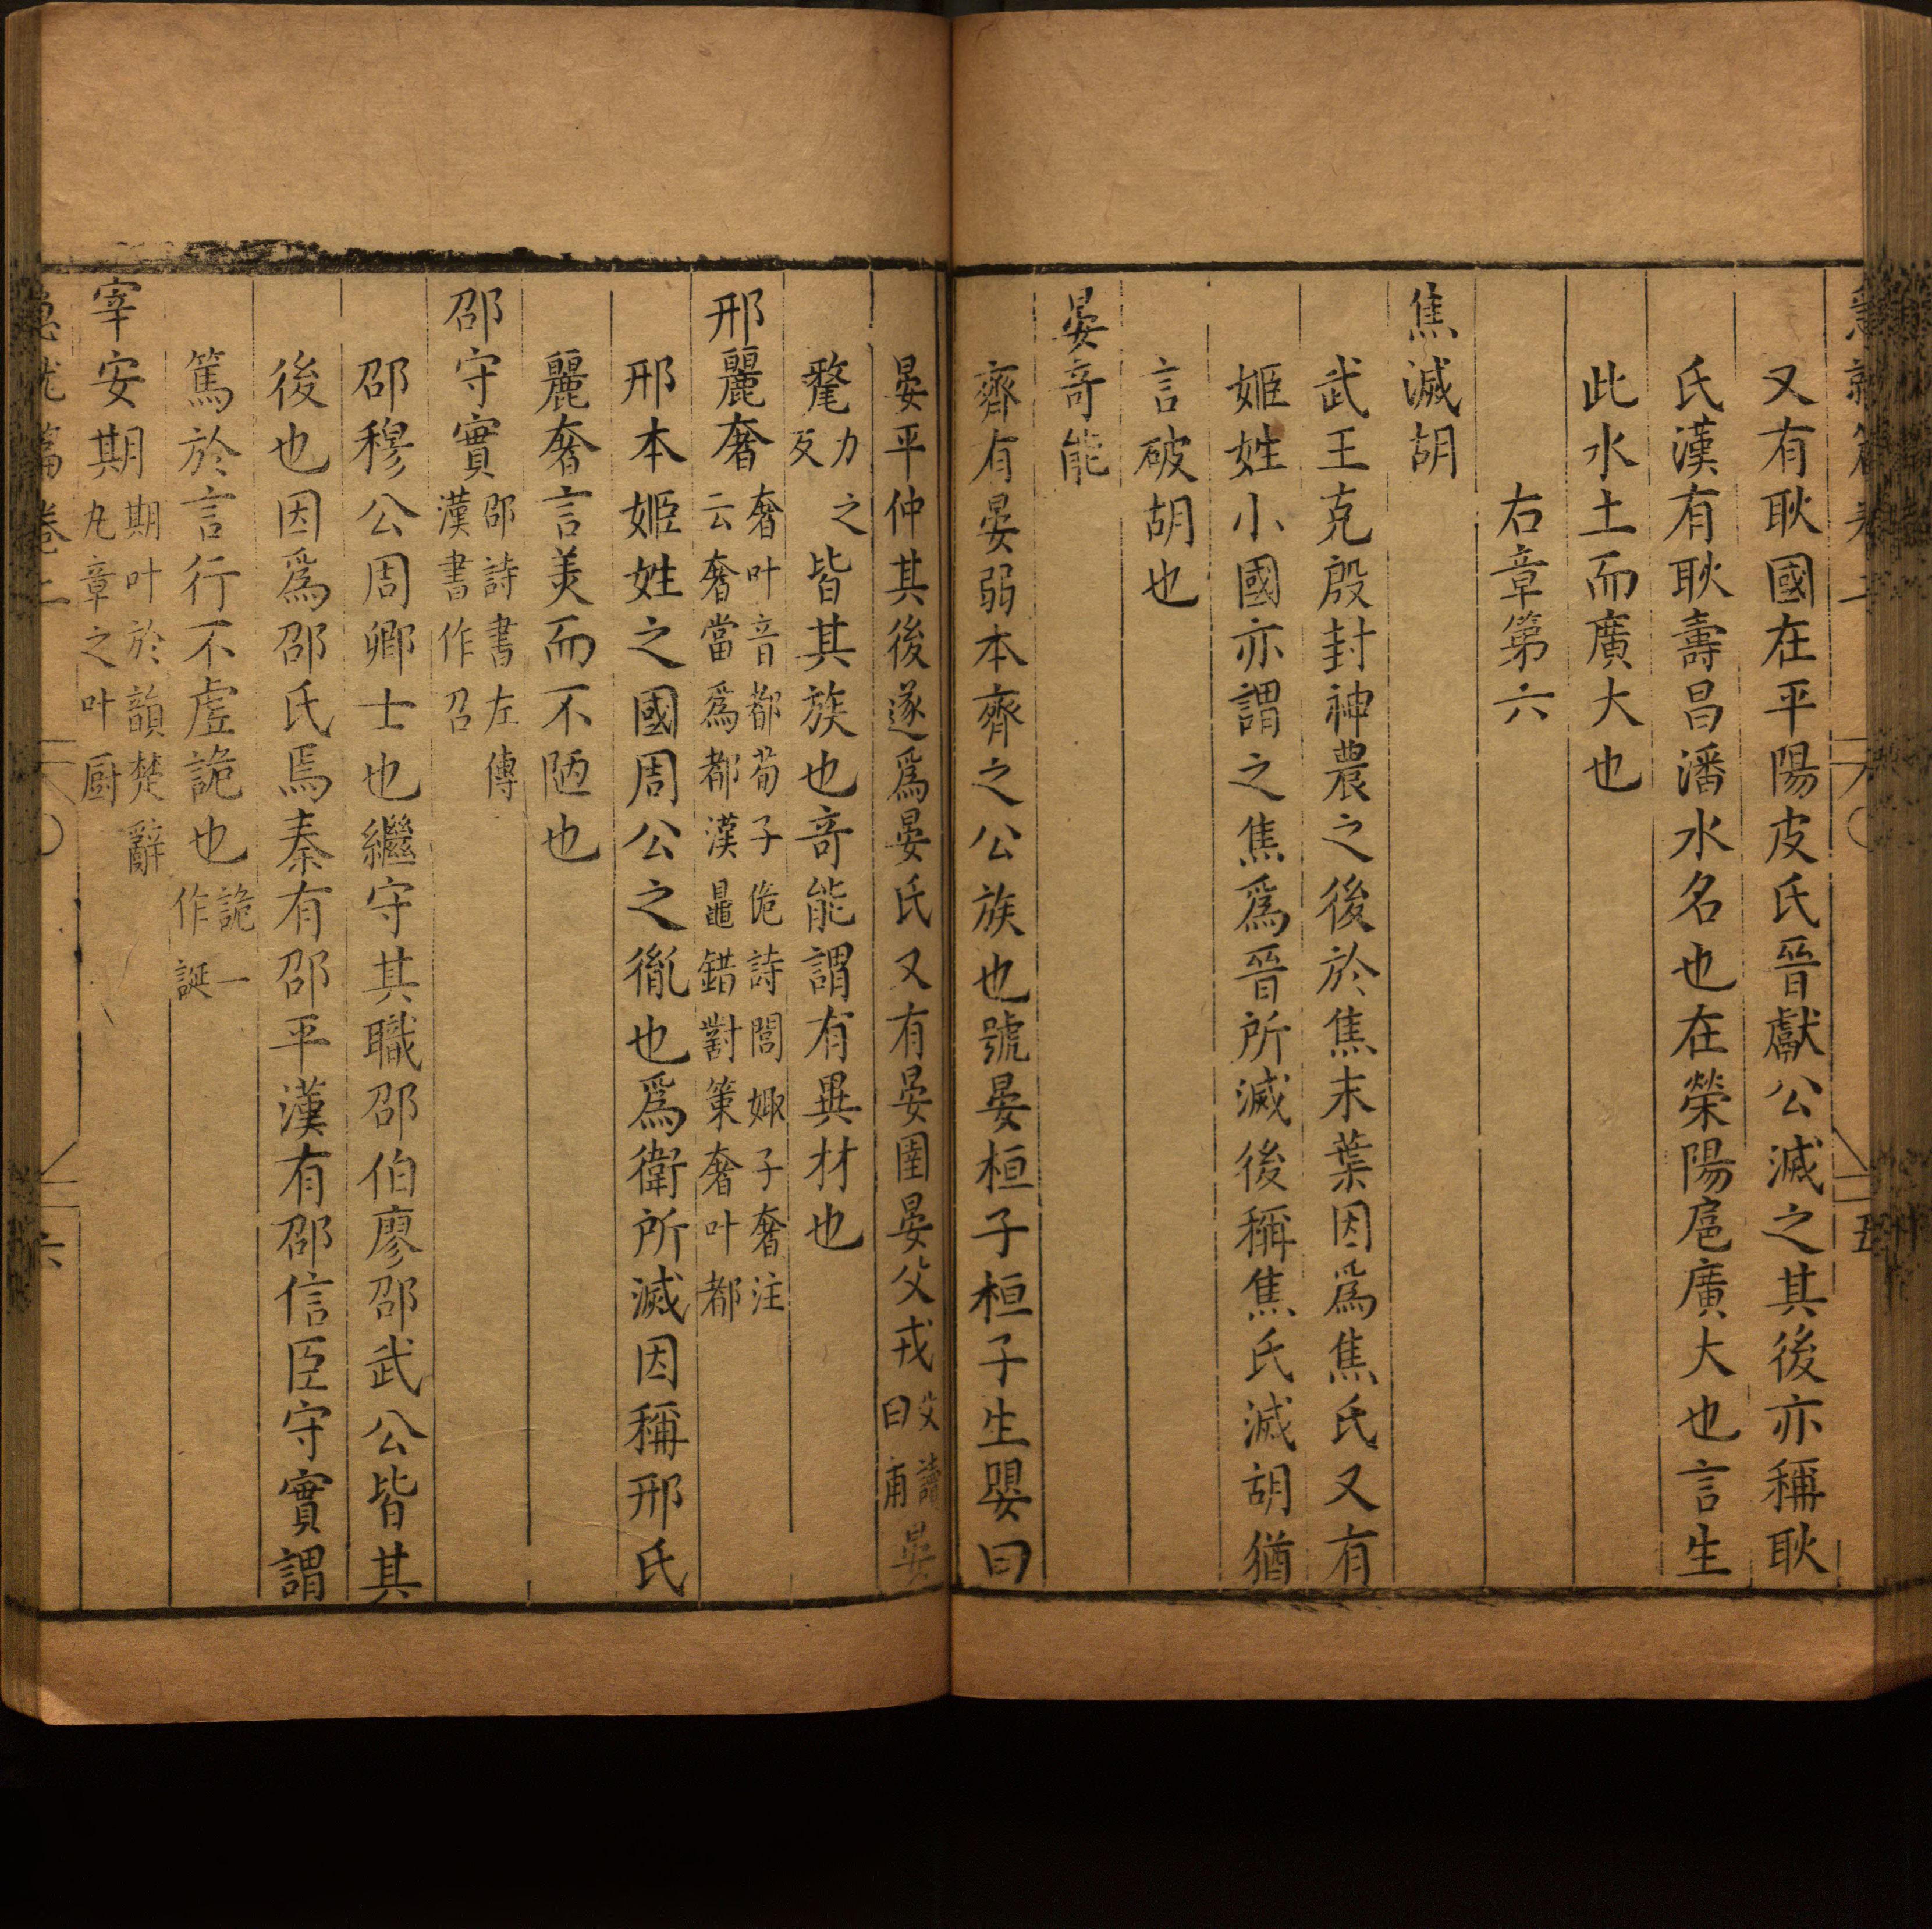 急就篇卷一 五
又有耿國在平陽皮氏晉獻公滅之其後亦稱耿
氏漢有耿壽昌潘水名也在滎陽扈廣大也言生
此水土而廣大也
右章第六
焦滅胡
武王克殷封神農之後於焦末葉因爲焦氏又有
姬姓小國亦謂之焦爲晉所滅後稱焦氏滅胡猶
言破胡也
晏奇能
齊有晏弱本齊之公族也號晏桓子桓子生嬰曰
晏平仲其後遂爲晏氏又有晏圉晏父戎父讀曰甫晏
氂力之反皆其族也奇能謂有異材也
邢麗奢奢叶音都荀子佹詩閭娵子奢注
云奢當爲都漢鼂錯對策奢叶都
邢本姬姓之國周公之胤也爲衛所滅因稱邢氏
麗奢言美而不陋也
邵守實邵詩書左傳
漢書作召
邵穆公周卿士也繼守其職邵伯廖邵武公皆其
後也因爲邵氏焉秦有邵平漢有邵信臣守實謂
篤於言行不虛詭也詭一作誕
宰安期期叶於韻楚辭
九章之叶厨
急就篇卷上 六